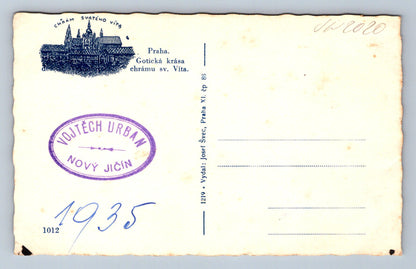 CHRÁM SVATÉHO VÍTA
Praha.
Gotická krása
chrámu sv. Víta.
VOJTĚCH URBAN
NOVÝ JIČÍN
1012
1935
1219 • Vydal: Josef Švec, Praha XI. čp 88